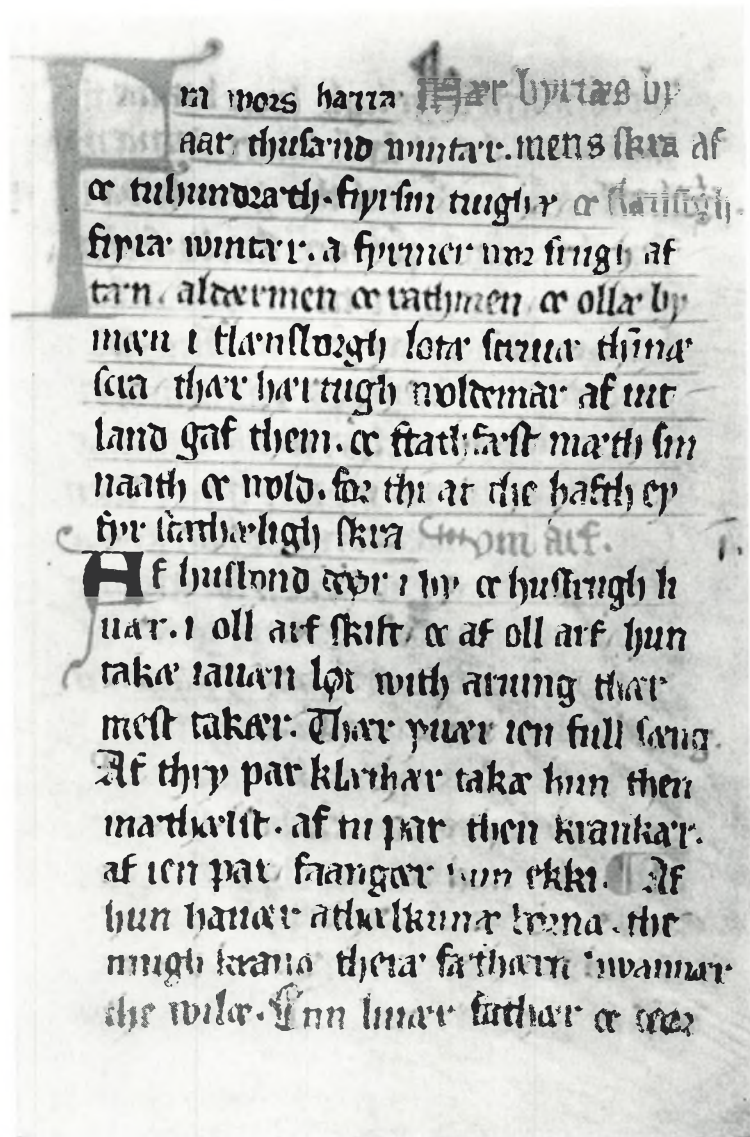 Fra wors harra Hær byriæs by
aar thusænd wintær. mens skra af
oc tuhundrath. fyrsin tiughæ oc
fyræ wintær. a fyrmer wor af
aldærmen oc rathmen oc ollæ by
mæn i flænsborgh lotæ scriuæ thinnæ
scra thær hærtugh woldemar af iut
land gaf them. oc stathfæst mæth sin
naath oc wold. for thi at the hafth ey
fyr stathæligh skra om arf. I.
Af husbond døør i by oc husfrugh li
uær. i oll arf skift. oc af oll arf hun
takæ iauæn lot with aruing thær
mest takær. Thær yuær ien full sæng.
Af thry par klæthær takæ hun then
mathælist. af tu par then krankær.
af ien par faangær hun ekki. Af
hun hauær athælkunæ børnæ. the
mugh krauæ theræ fæthærn hwannær
the wilæ. Enn liuær fathær oc døør